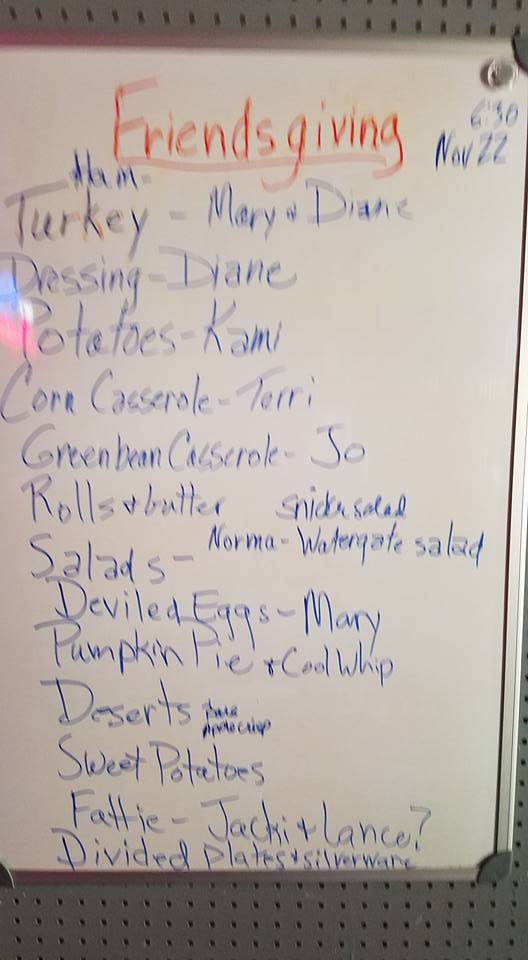 Friendsgiving
6:30
Nov 22
Ham-
Turkey - Mary & Diane
Dressing - Diane
Potatoes - Kami
Corn Casserole - Terri
Greenbean Casserole - Jo
Rolls & butter
snicker salad
Salads - Norma - Watergate salad
Deviled Eggs - Mary
Pumpkin Pie & Cool Whip
Deserts
Apple crisp
Sweet Potatoes
Fattie - Jacki & Lance?
Divided plates & silverware